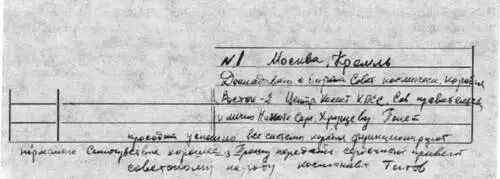 N.1 Москва, Кремль
Докладываю с борта Совет космическ. корабля
Восток-2 Центр Комит КПСС, Сов правительств
и лично Никите Серг. Хрущеву Полет
проходит успешно все системы корабля функционируют
нормально Самочувствие хорошее Прошу передать сердечный привет
советскому народу космонавт Титов